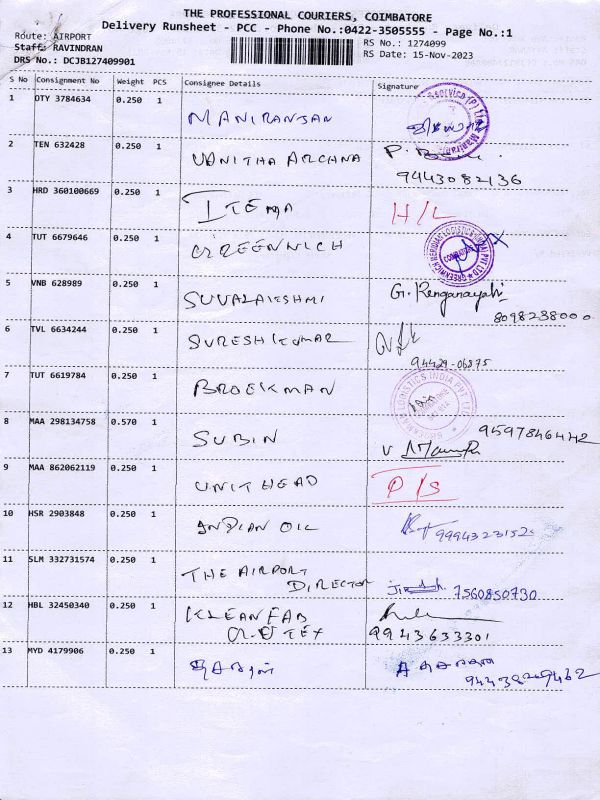 THE PROFESSIONAL COURIERS, COIMBATORE
Delivery Runsheet - PCC - Phone No.:0422-3505555 - Page No.:1
Route: AIRPORT
Staff: RAVINDRAN
DRS No.: DCJB127409901
RS No.: 1274099
RS Date: 15-Nov-2023
S No Consignment No Weight PCS Consignee Details Signature
1 OTY 3784634 0.250 1 MANIRANJAN
2 TEN 632428 0.250 1 VANITHA ARCHANA P.
9443082136
3 HRD 360100669 0.250 1 ITEMA H/L
4 TUT 6679646 0.250 1 GREENWICH
GREENWICH MERIDIAN LOGISTICS INDIA PVT LTD
5 VNB 628989 0.250 1 SUVALAKSHMI G. Renganayaki
8098238000
6 TVL 6634244 0.250 1 SURESH KUMAR
94429-06875
7 TUT 6619784 0.250 1 BROEKMAN
LOGISTICS INDIA PVT. LTD
8 MAA 298134758 0.570 1 SUBIN 9597846442
9 MAA 862062119 0.250 1 UNIT HEAD D/S
10 HSR 2903848 0.250 1 INDIAN OIL
11 SLM 332731574 0.250 1 THE AIRPORT
DIRECTOR 7560850730
12 HBL 32450340 0.250 1 KLEANFAB
9943633301
13 MYD 4179906 0.250 1